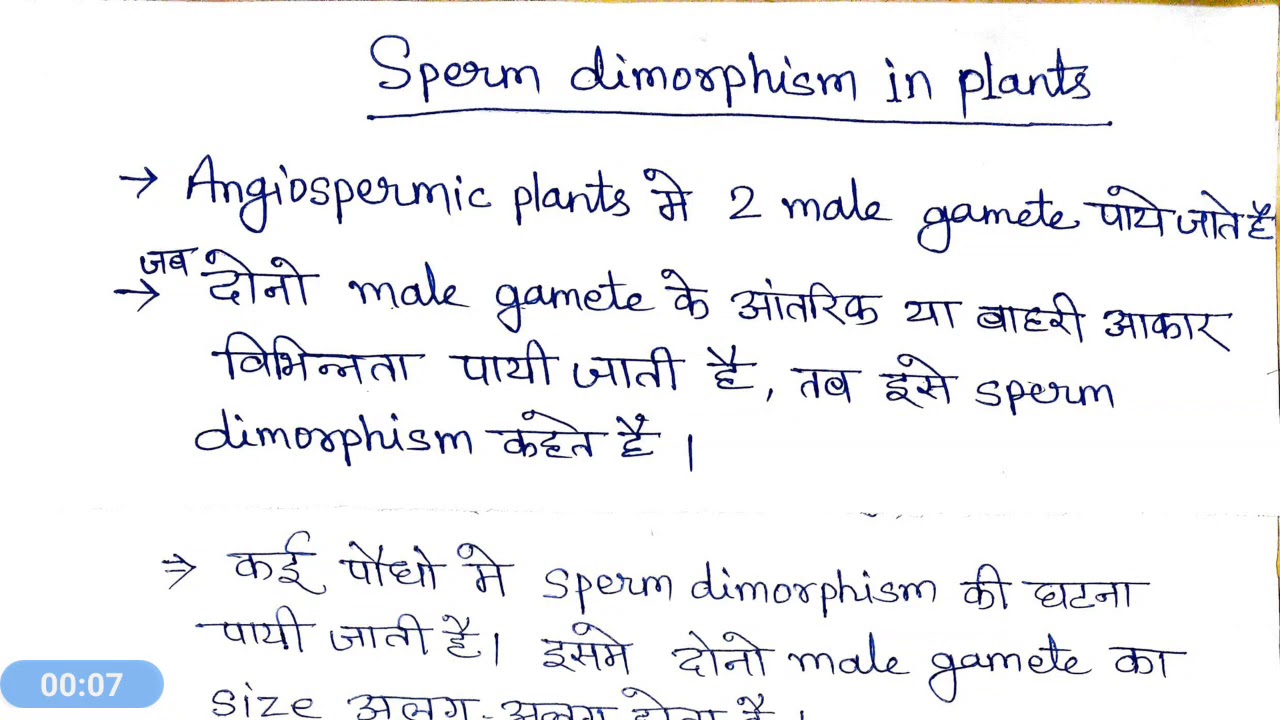 Sperm dimorphism in plants
→ Angiospermic plants मे 2 male gamete पाये जाते है
जब
→ दोनो male gamete के आंतरिक या बाहरी आकार
विभिन्नता पायी जाती है, तब इसे sperm
dimorphism कहते है ।
⇒ कई पौधो मे sperm dimorphism की घटना
पायी जाती है। इसमे दोनो male gamete का
size अलग-अलग होता है ।
00:07